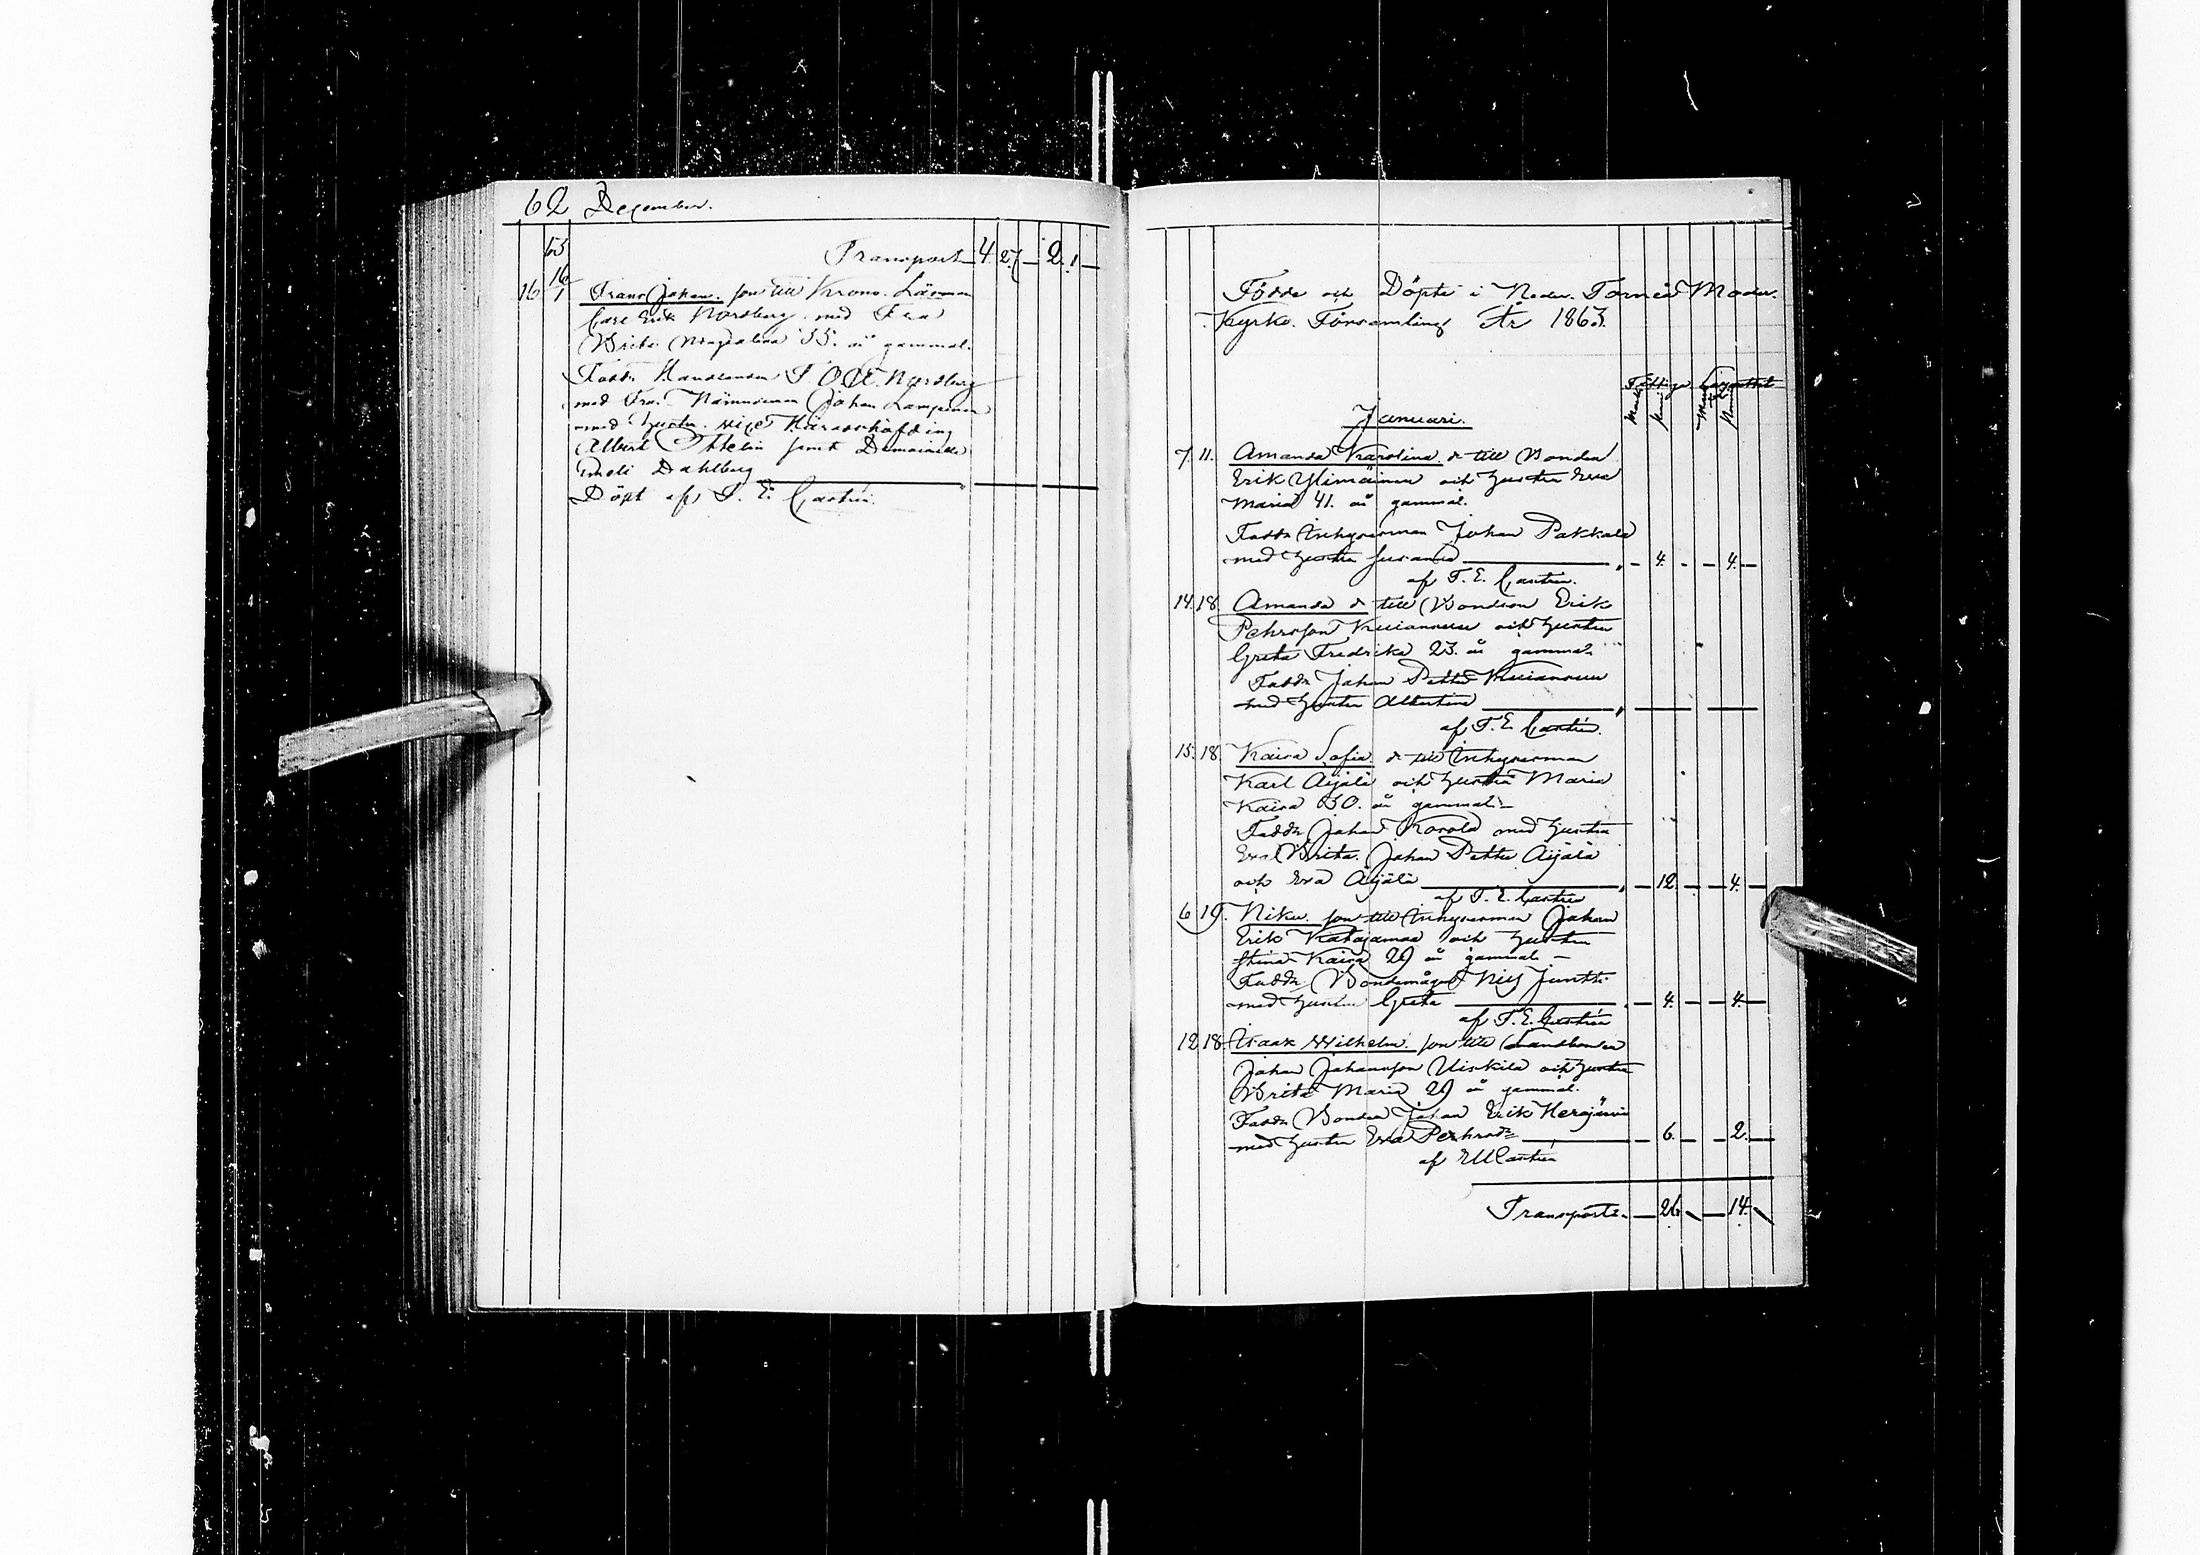 62 December.
63
Transport 4 27 — 2 1 —
16 16/1 Frans Johan. son till Krono. Länsman
Carl Erik Nordberg med Fru
Brita Magdalena 35. år gammal.
Faddr Handlanden J O W. Nordberg
med Fru. Nämndeman Johan Lampinen
med hustru. vice Häradshöfding
Albert samt Demoiselle
Dahlberg
Döpt af F. E. Castrén.
Födde och Döpte i Neder. Torneå Moder.
Kyrko. Församling År 1863.
Fattiga
Mark Penni Mark Penni
Januari.
7. 11. Amanda Karolina. d till Bonden
Erik Ylimäinen och hustru Eva
Maria 41. år gammal.
Faddr Inhysesman Johan Pakkala
med hustru Susanna — 4. — 4. —
af F. E. Castrén.
14. 18. Amanda d till Bondson Erik
Pehrsson och hustru
Greta Fredrika 23. år gammal
Faddr Johan Petter
med hustru Albertina
af F. E. Castrén.
15. 18. Kaisa Sofia. d till Inhysesman
Karl Äijälä och hustru Maria
Kaisa 30. år gammal. —
Faddr Johan Korola med hustru
Eva Brita. Johan Petter Äijälä
och Eva Äijälä — 12. — 4. —
af F. E. Castrén
6 19. Niku. son till Inhysesman Johan
Erik Katajamaa och hustru
Stina Kaisa 29 år gammal —
Faddr Bondemågen Nils Juntti
med hustru Greta — 4. — 4. —
af F. E. Castrén
12 18. Isaak Wilhelm. son till Landbonden
Johan Johansson Uiskila och hustru
Brita Maria 29 år gammal.
Faddr Bonden Johan Erik Herajärvi
med hustru Eva Pehrsdr — 6. — 2. —
af Castrén
Transporte. — 26. — 14.